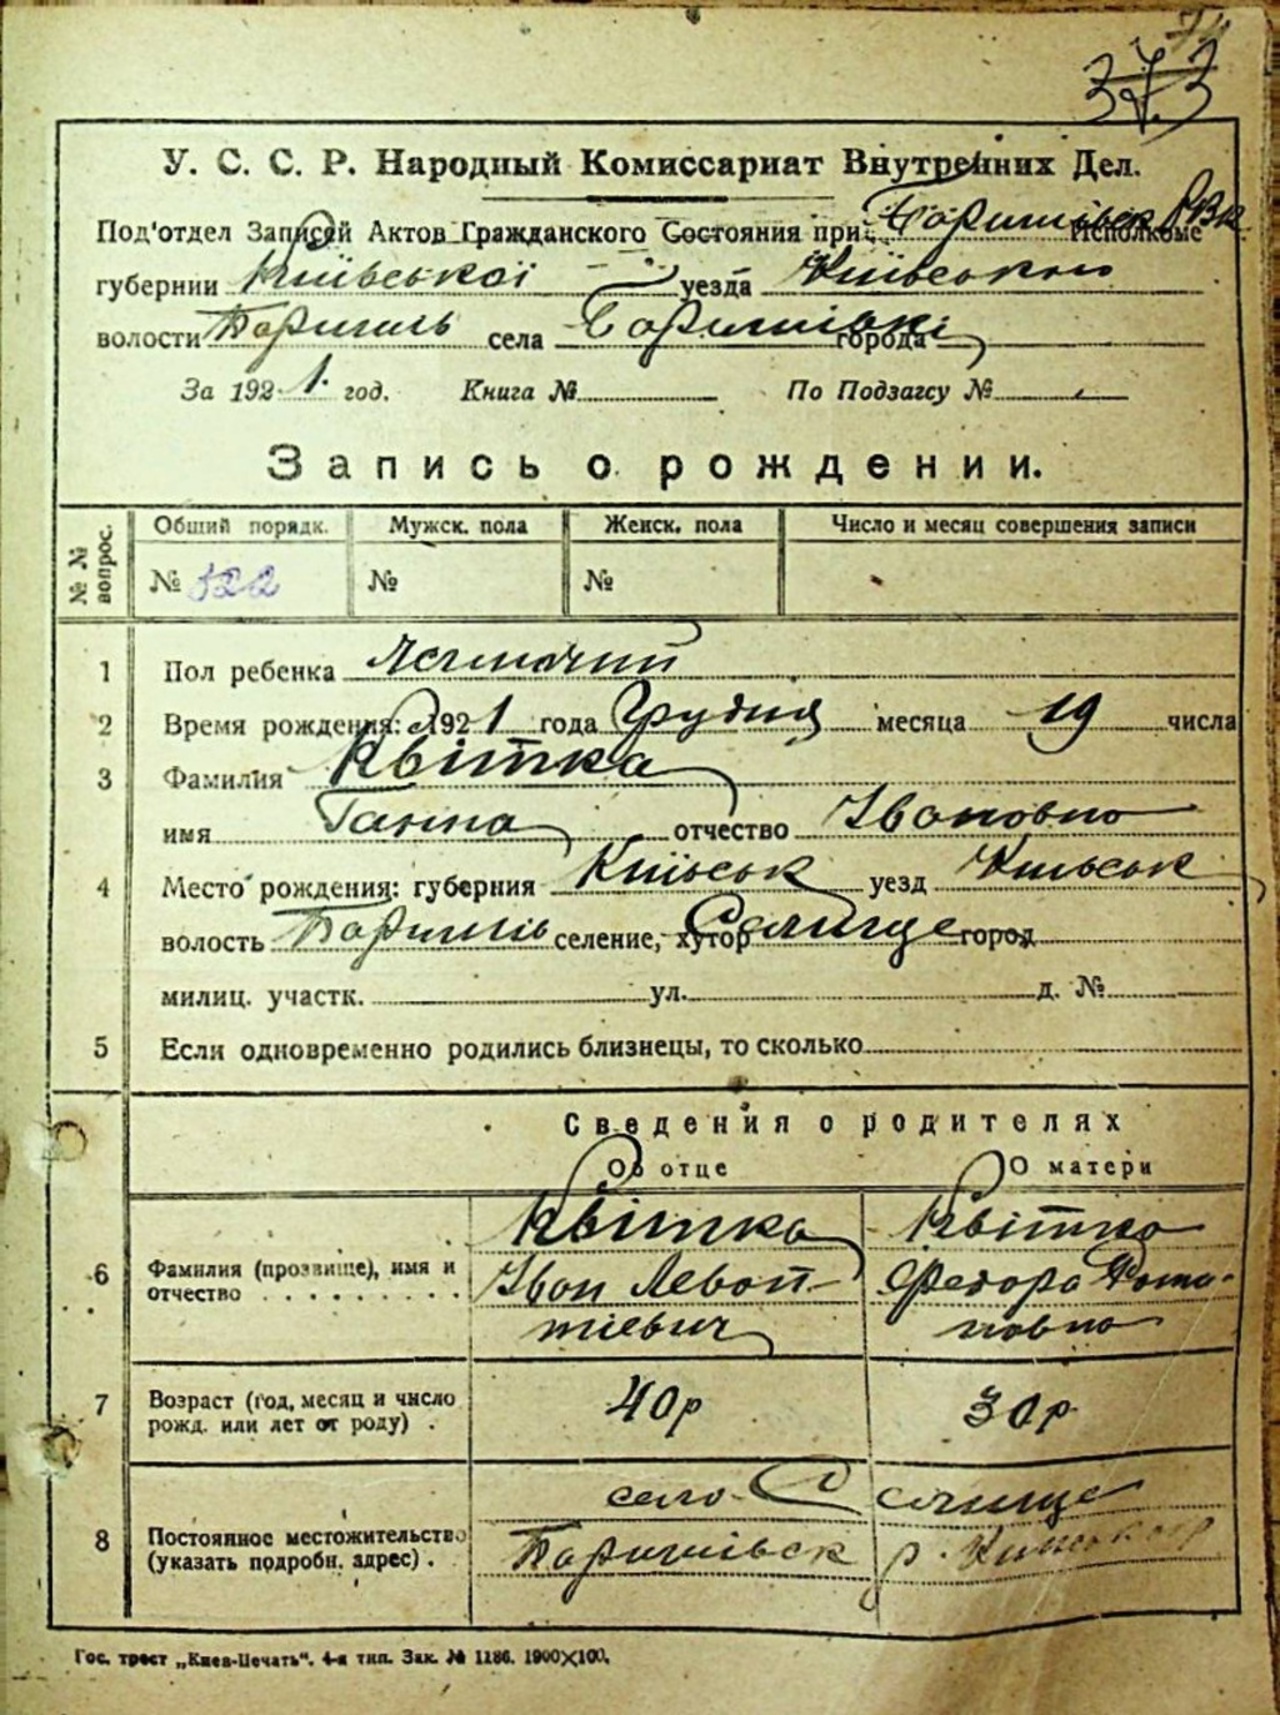 373
У. С. С. Р. Народный Комиссариат Внутренних Дел.
Под'отдел Записей Актов Гражданского Состояния при Баришівск РВК Исполкоме
губернии Київської уезда Київського
волости Баришівка села города
За 1921. год. Книга № По Подзагсу №
Запись о рождении.
№№ вопрос. Общий порядк. Мужск. пола Женск. пола Число и месяц совершения записи
№ 522 № №
1 Пол ребенка
2 Время рождения: 1921 года Грудня месяца 19 числа
3 Фамилия Квітка
имя Ганна отчество Івановна
4 Место рождения: губерния Київськ уезд Київськ
волость Баришів селение, хутор Селище город
милиц. участк. ул. д. №
5 Если одновременно родились близнецы, то сколько
Сведения о родителях
Об отце О матери
Квітка Квітка
6 Фамилия (прозвище), имя и отчество Іван Левон- Федора Пота-
тіевич повна
7 Возраст (год, месяц и число рожд. или лет от роду) . 40 р 30 р.
село Селище
8 Постоянное местожительство (указать подробн. адрес) . Баришівськ р.
Гос. трест „Киев-Печать“. 4-я тип. Зак. № 1186. 1900×100.